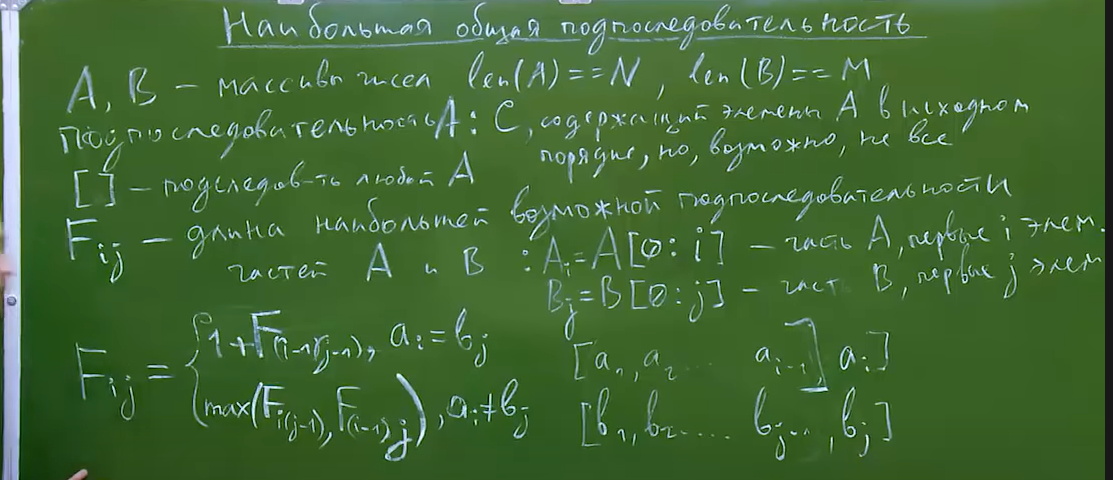 Наибольшая общая подпоследовательность
A, B – массивы чисел len(A)==N, len(B)==M
подпоследовательность A: C, содержащий элемены A в исходном
порядке, но, возможно, не все
[] – подследов-ть любой A
F_ij – длина наибольшей возможной подпоследовательности
частей A и B : A_i=A[0:i] – часть A, первые i элем.
B_j=B[0:j] – часть B, первые j элем
F_ij = { 1+F_(i-1)(j-1), a_i=b_j
max(F_i(j-1), F_(i-1)j), a_i≠b_j
[a_1, a_2... a_i-1] a_i]
[b_1, b_2.... b_j-1, b_j]